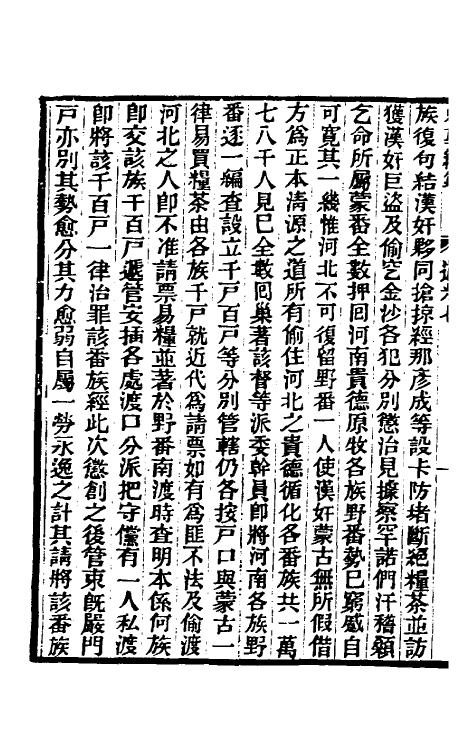 族復句結漢奸夥同搶掠經那彥成等設卡防堵斷絕糧茶並訪
獲漢奸巨盜及偷挖金沙各犯分別懲治見據察罕諾們汗稽顙
乞命所屬蒙番全數押回河南貴德原牧各族野番勢已窮蹙自
可寬其一綫惟河北不可復留野番一人使漢奸蒙古無所假借
方為正本清源之道所有偷住河北之貴德循化各番族共一萬
七八千人見已全數回巢著該督等派委幹員即將河南各族野
番逐一編查設立千戶百戶等分別管轄仍各按戶口與蒙古一
律易買糧茶由各族千戶就近代為請票如有為匪不法及偷渡
河北之人即不准請票易糧並著於野番南渡時查明本係何族
即交該族千百戶遷管安插各處渡口分派把守儻有一人私渡
即將該千百戶一律治罪該番族經此次懲創之後管束旣嚴門
戸亦別其勢愈分其力愈弱自屬一勞永逸之計其請將該番族